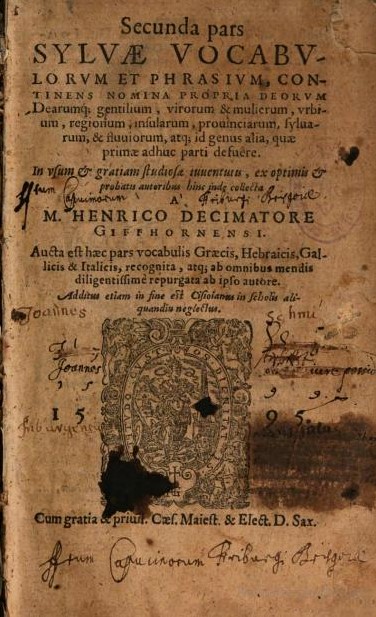 Secunda pars
SYLVÆ VOCABV-
LORVM ET PHRASIVM, CON-
TINENS NOMINA PROPRIA DEORVM
Dearumq; gentilium, virorum & mulierum, vrbi-
um, regionum, insularum, prouinciarum, sylua-
rum, & fluuiorum, atq; id genus alia, quæ
primæ adhuc parti defuêre.
In vsum & gratiam studiosæ iuuentutis, ex optimis &
probatis autoribus hinc inde collecta
Capucinorum Friburgi Brisgoiæ
A
M. HENRICO DECIMATORE
GIFFHORNENSI.
Aucta est hæc pars vocabulis Græcis, Hebraicis, Gal-
licis & Italicis, recognita, atq; ab omnibus mendis
diligentissimè repurgata ab ipso autore.
Additus etiam in fine est Cisiolanus in scholis ali-
quandiu neglectus.
Joannes
Schmi
Joannes
15 95
Cum gratia & priuil. Cæs. Maiest. & Elect. D. Sax.
Capucinorum Friburgi Brisgoiæ